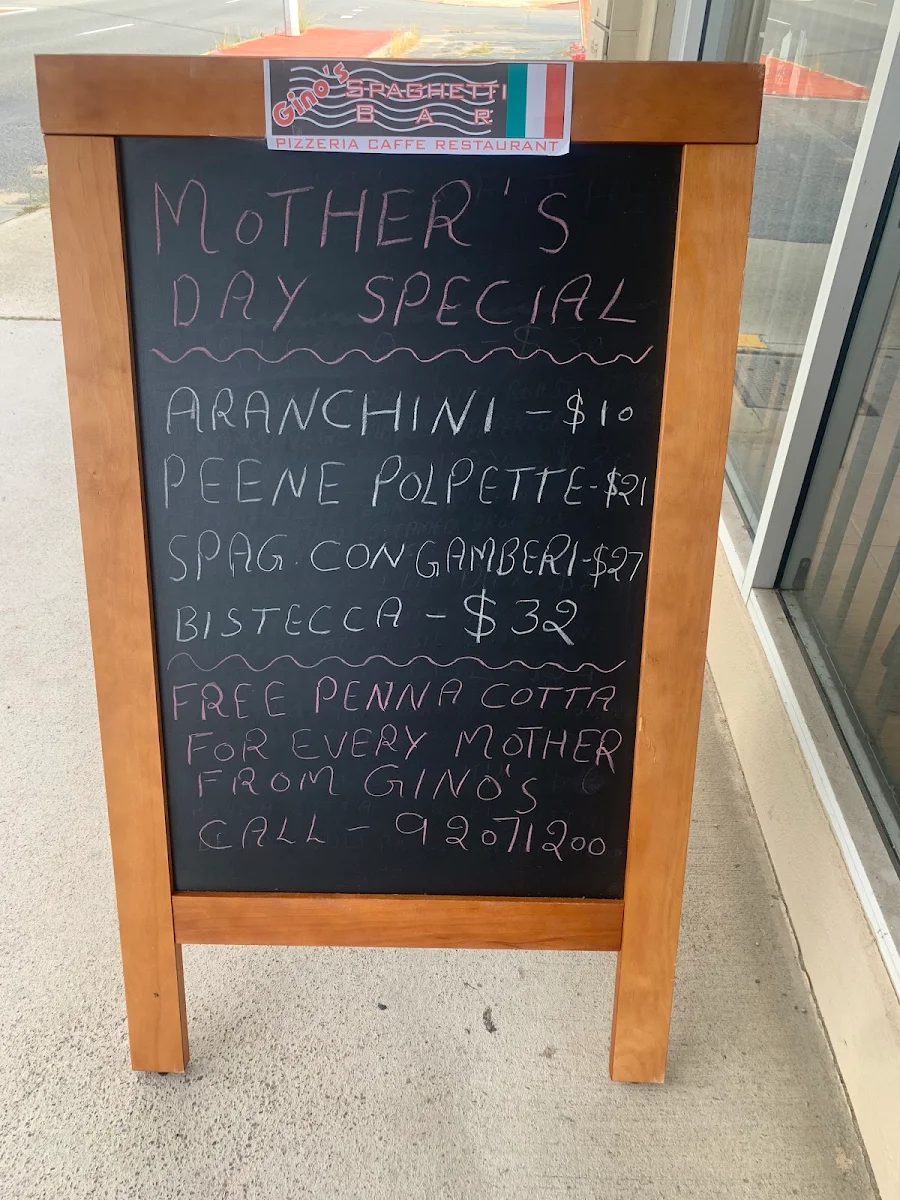 Gino's SPAGHETTI
BAR
PIZZERIA CAFFE RESTAURANT
MOTHER'S
DAY SPECIAL
ARANCHINI - $10
PEENE POLPETTE - $21
SPAG. CON GAMBERI - $27
BISTECCA - $32
FREE PENNA COTTA
FOR EVERY MOTHER
FROM GINO'S
CALL - 92071200